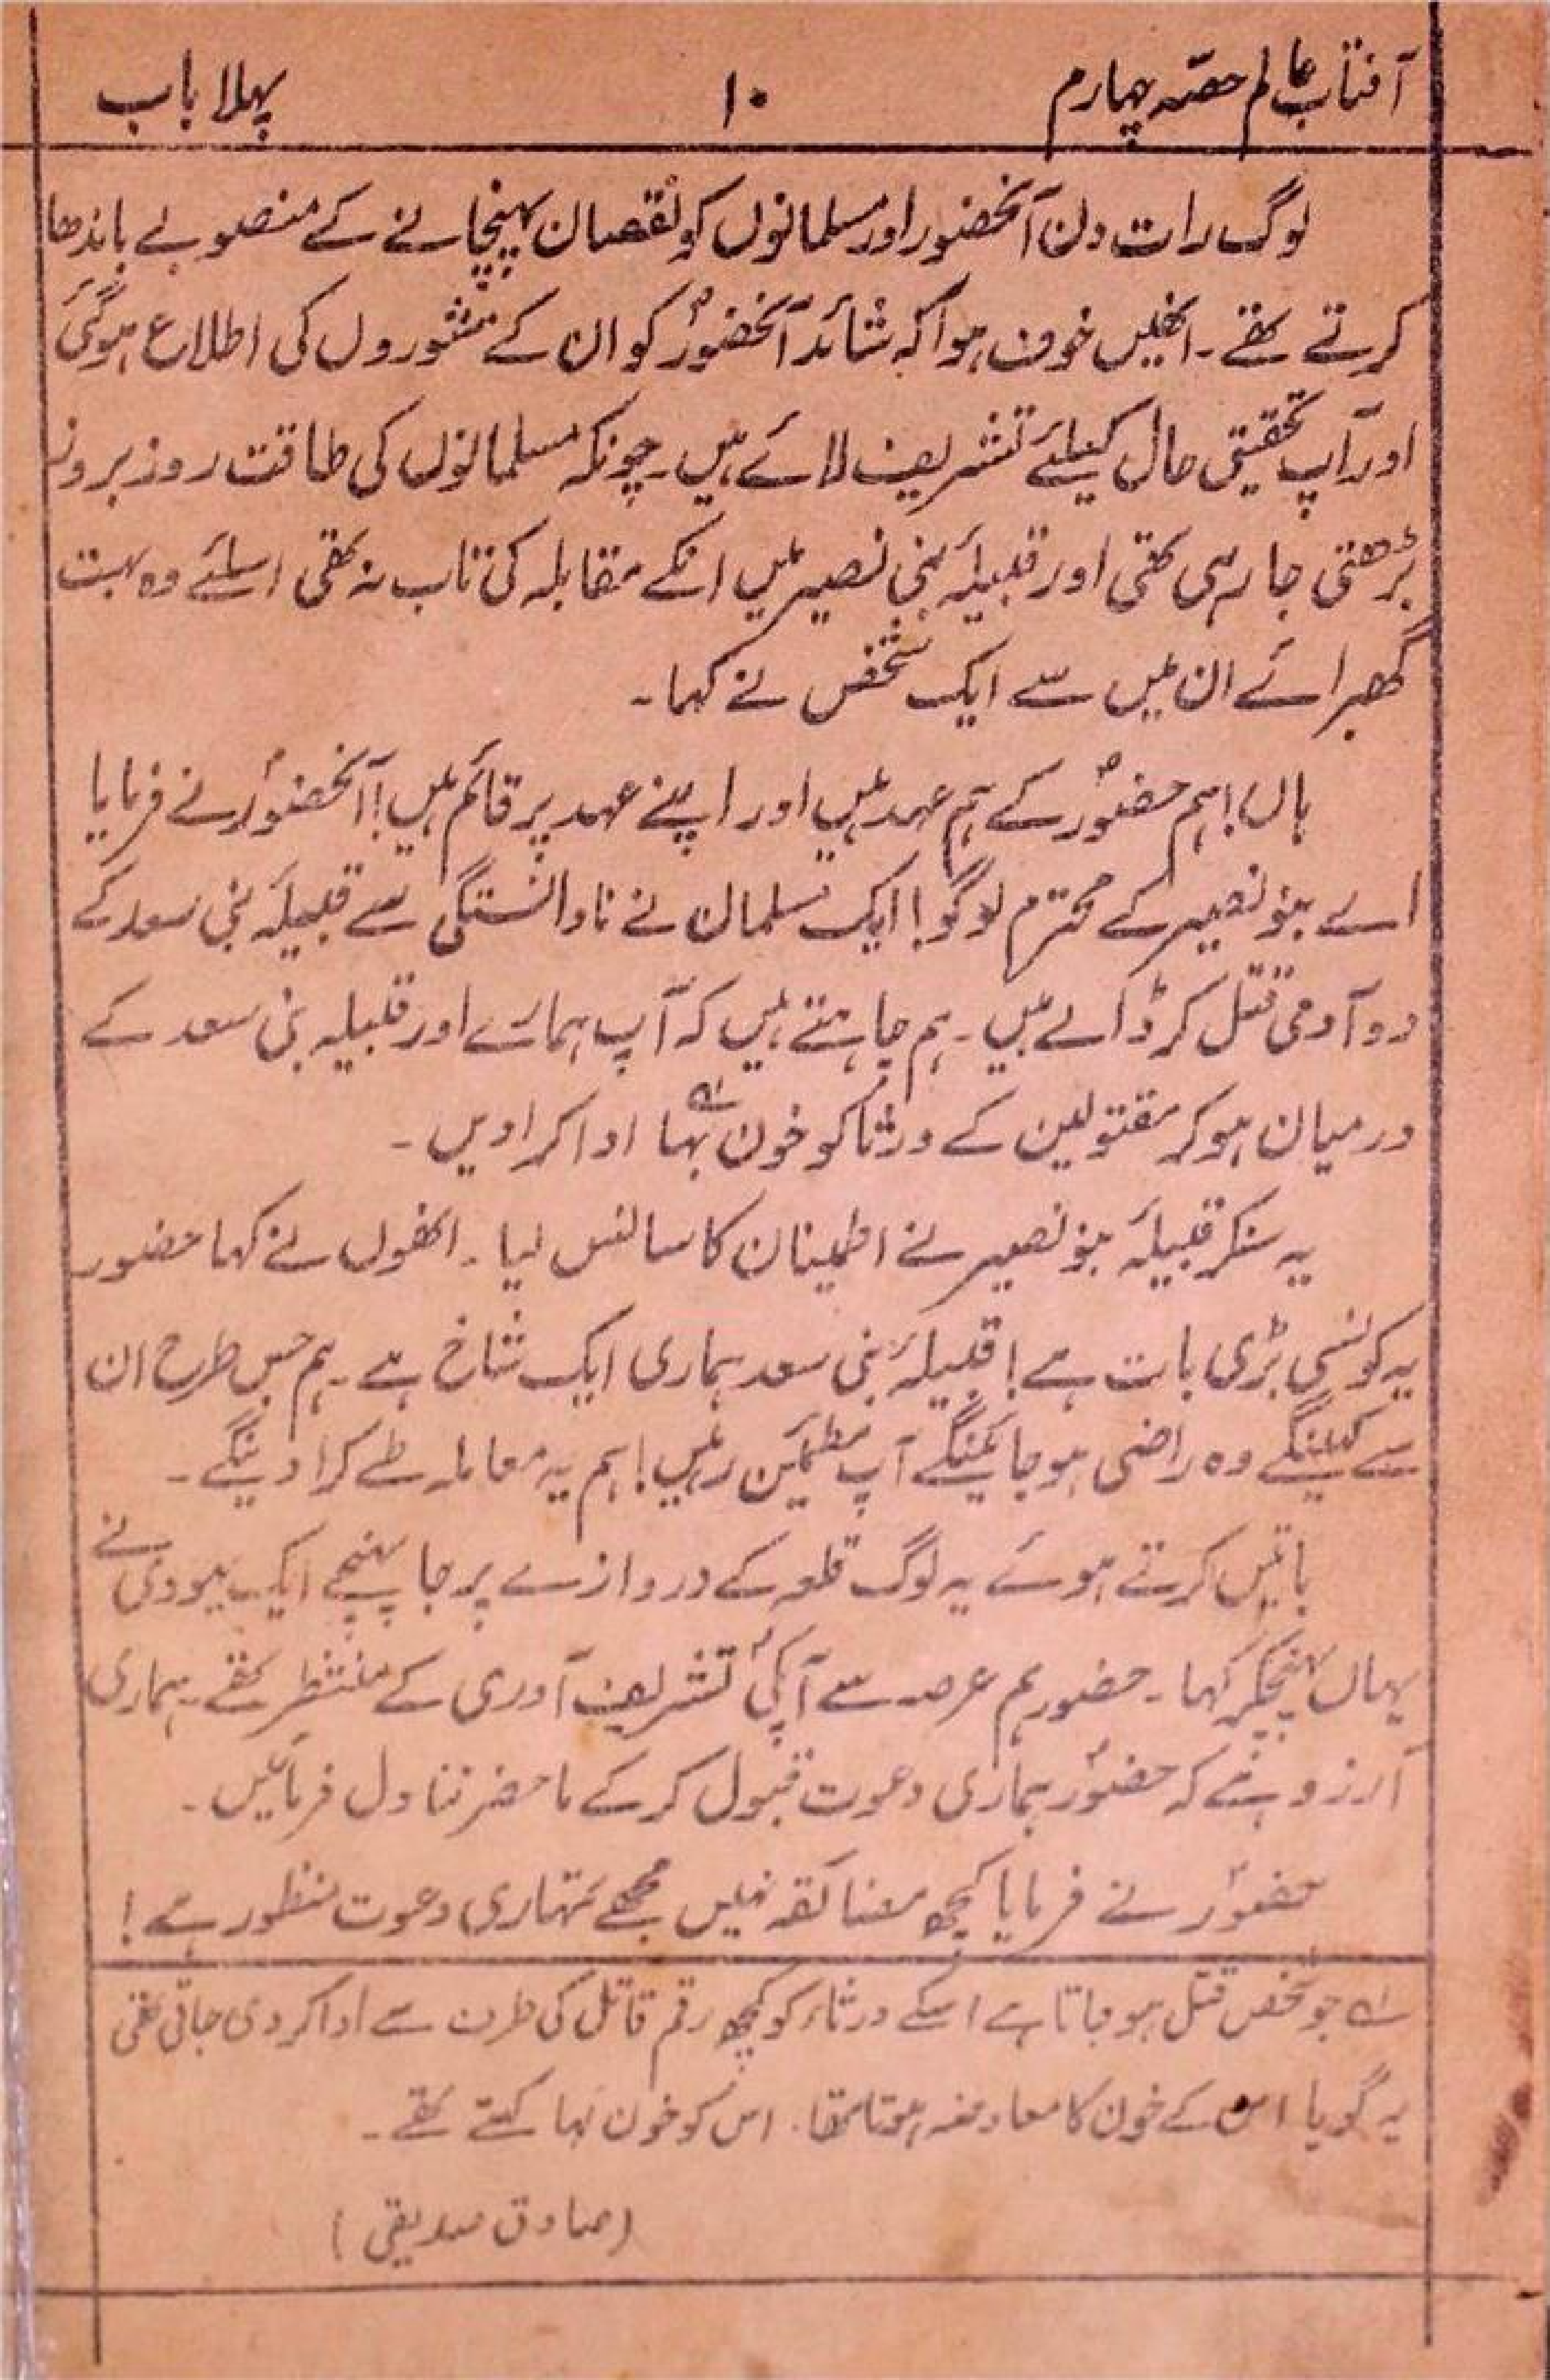 آفتاب عالم حصّہ چہارم ۱۰ پہلا باب
لوگ رات دن آنحضور اور مسلمانوں کو نقصان پہنچانے کے منصوبے باندھا
کرتے تھے۔ انھیں خوف ہوا کہ شائد آنحضورؐ کو ان کے مشوروں کی اطلاع ہوگئی
اور آپ تحقیق حال کیلئے تشریف لائے ہیں۔ چونکہ مسلمانوں کی طاقت روز بروز
بڑھتی جا رہی تھی اور قبیلۂ بنی نصیر میں انکے مقابلہ کی تاب نہ تھی اسلئے وہ بہت
گھبرائے ان میں سے ایک شخص نے کہا۔
ہاں! ہم حضورؐ کے ہم عہد ہیں اور اپنے عہد پر قائم ہیں! آنحضورؐ نے فرمایا
اے بنو نصیر کے محترم لوگو! ایک مسلمان نے نادانستگی سے قبیلۂ بنی سعد کے
دو آدمی قتل کر ڈالے ہیں۔ ہم چاہتے ہیں کہ آپ ہمارے اور قبیلہ بنی سعد کے
درمیان ہو کر مقتولین کے ورثا کو خون بہا ؎۱ ادا کرا دیں۔
یہ سنکر قبیلۂ بنو نصیر نے اطمینان کا سانس لیا۔ انھوں نے کہا حضور
یہ کونسی بڑی بات ہے! قبیلۂ بنی سعد ہماری ایک شاخ ہے۔ ہم جس طرح ان
سے کہینگے وہ راضی ہو جائینگے آپ مطمئین رہیں! ہم یہ معاملہ طے کرا دینگے۔
باتیں کرتے ہوئے یہ لوگ قلعہ کے دروازے پر جا پہنچے ایک یہودی نے
یہاں پہنچکر کہا۔ حضور ہم عرصہ سے آپکی تشریف آوری کے منتظر تھے۔ ہماری
آرزو ہے کہ حضورؐ ہماری دعوت قبول کرکے ماحضر تناول فرمائیں۔
حضورؐ نے فرمایا کچھ مضائقہ نہیں مجھے تمہاری دعوت منظور ہے!
؎۱ جو شخص قتل ہو جاتا ہے اسکے ورثاء کو کچھ رقم قاتل کی طرف سے ادا کر دی جاتی تھی
یہ گویا اس کے خون کا معاوضہ ہوتا تھا۔ اس کو خون بہا کہتے تھے۔
(صادق صدیقی)